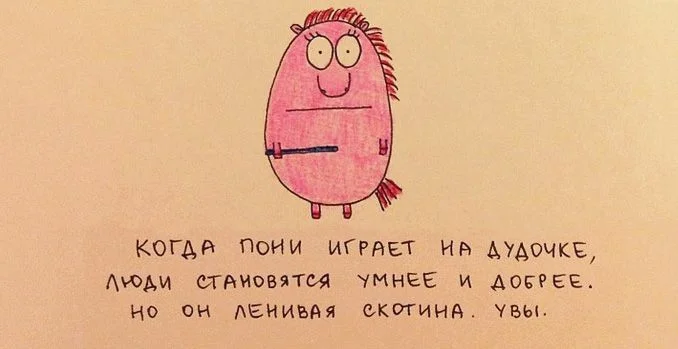 КОГДА ПОНИ ИГРАЕТ НА ДУДОЧКЕ,
ЛЮДИ СТАНОВЯТСЯ УМНЕЕ И ДОБРЕЕ.
НО ОН ЛЕНИВАЯ СКОТИНА. УВЫ.